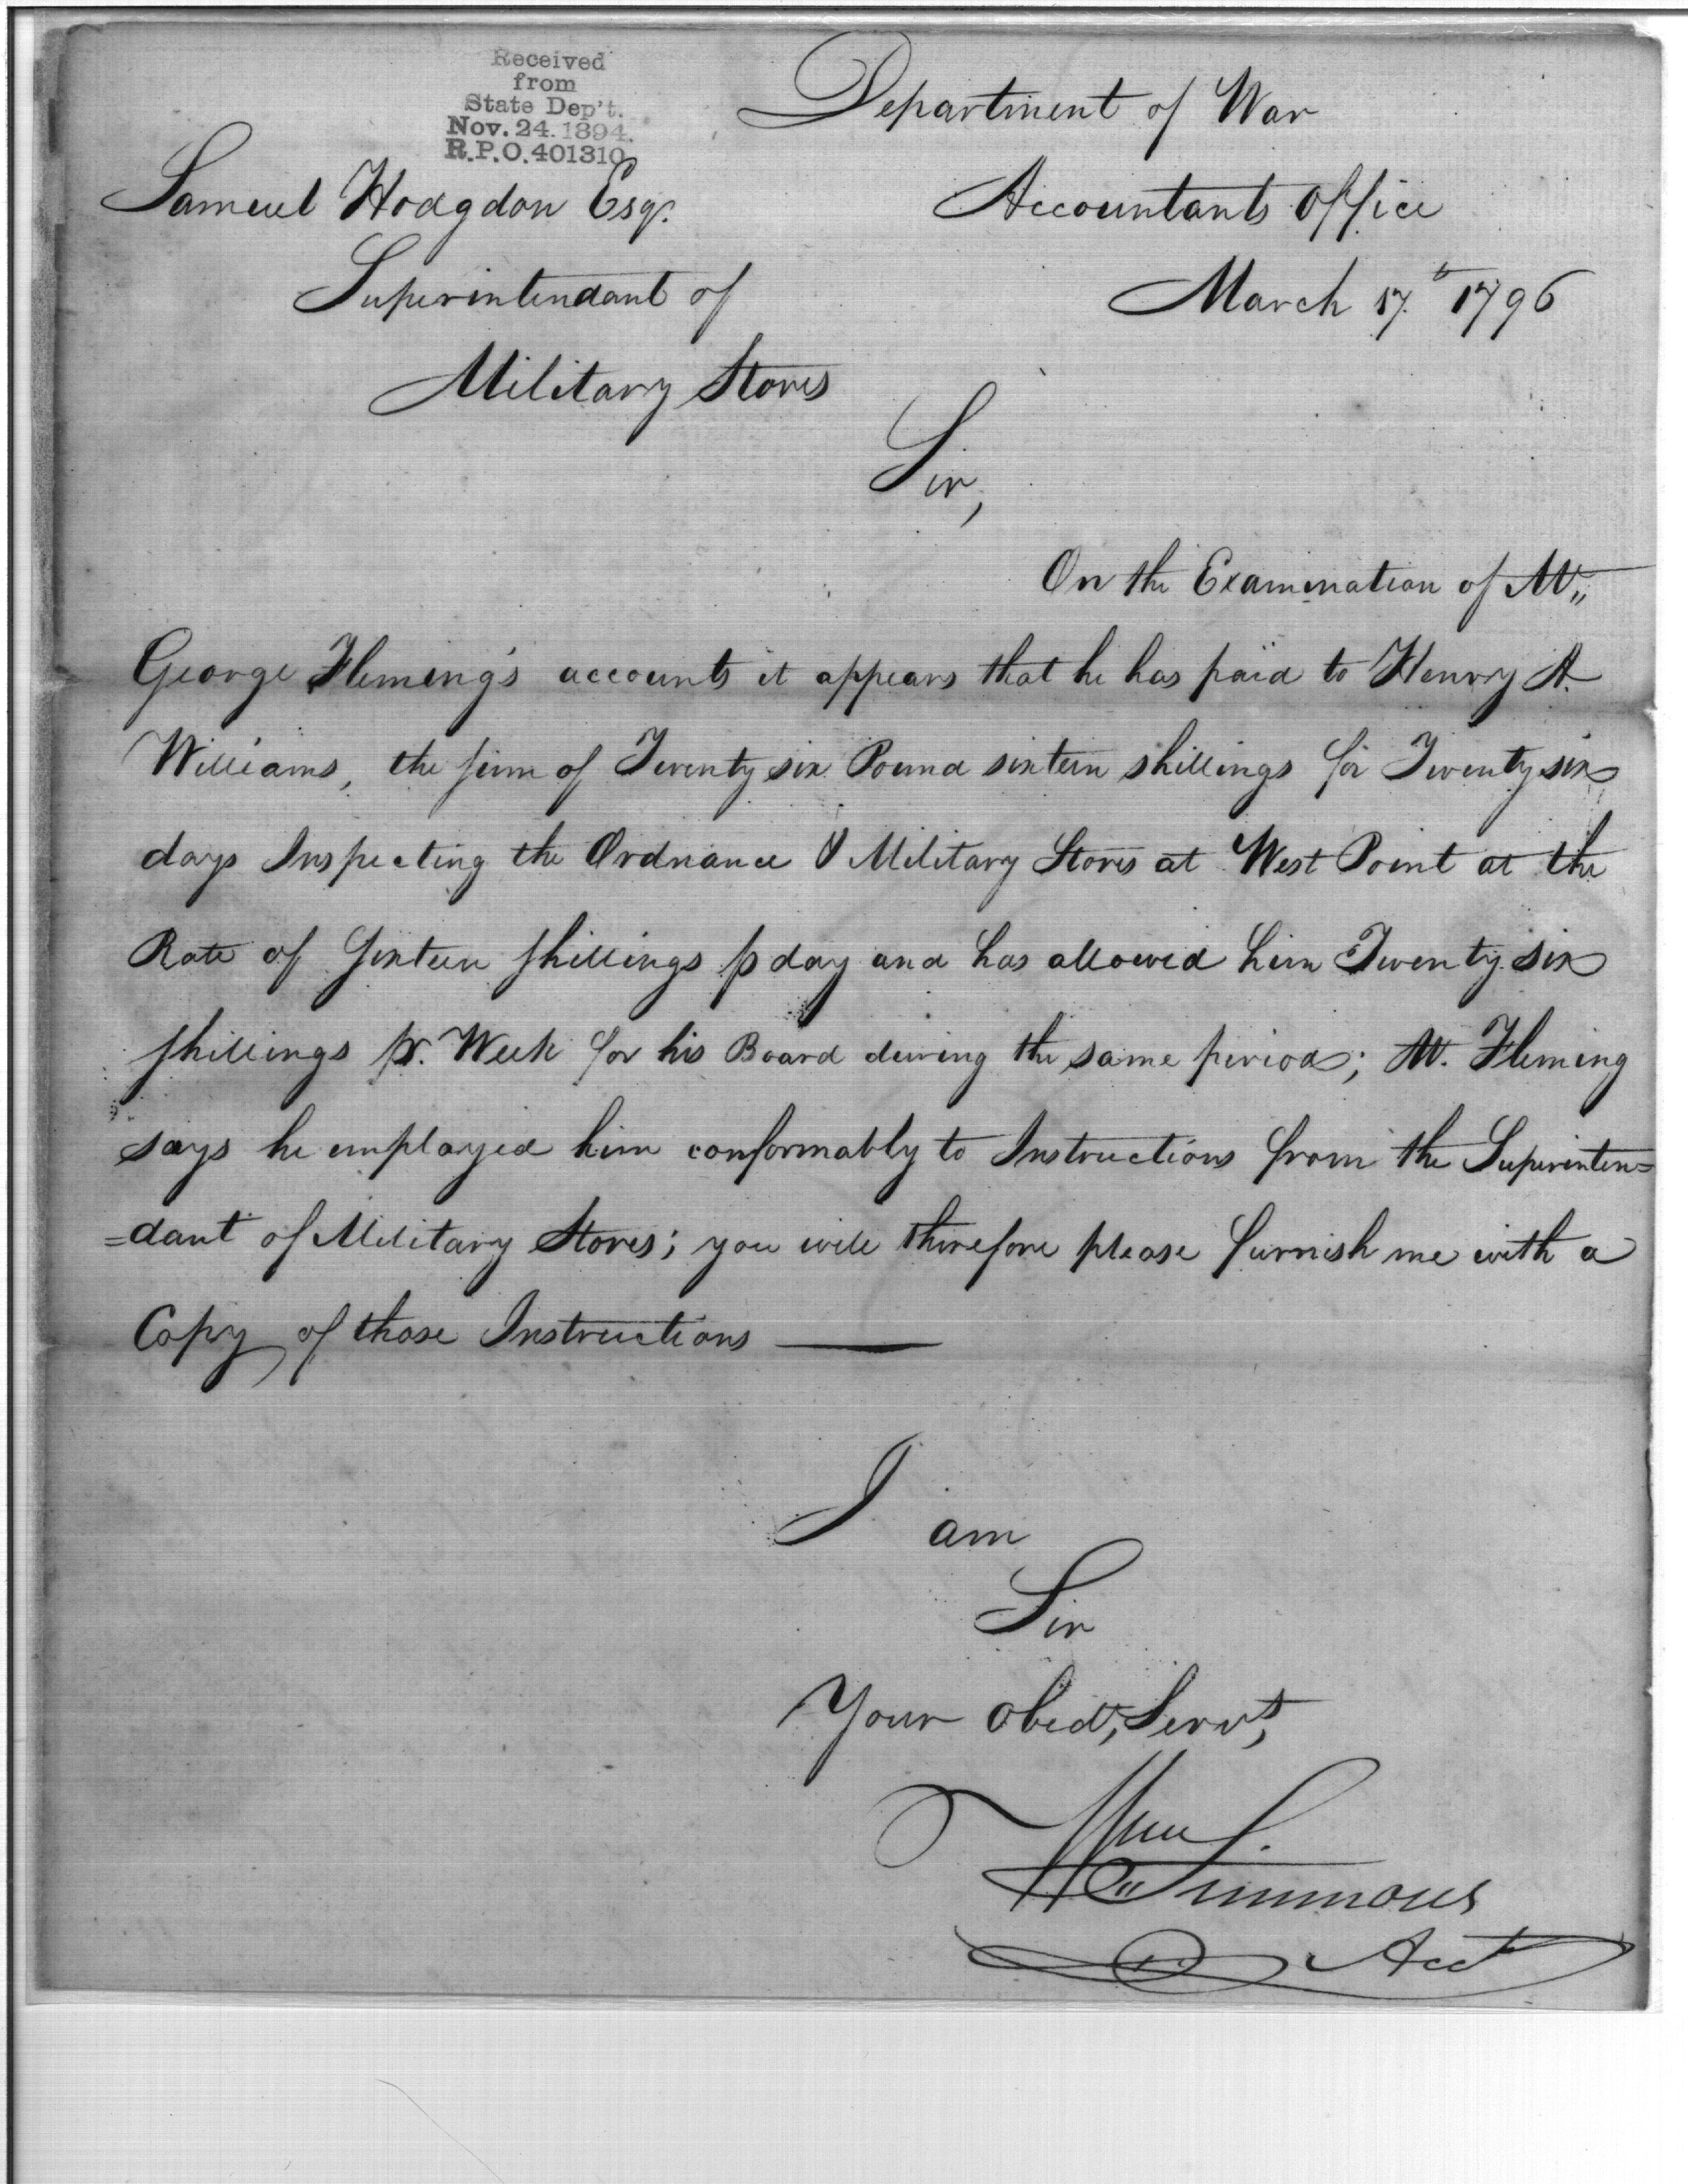 Received
from
State Dep't.
Nov. 24. 1894.
R.P.O. 401310
Department of War
Samuel Hodgdon Esqr.
Accountants Office
Superintendant of
March 17th 1796
Military Stores
Sir,
On the Examination of Mr.
George Fleming's accounts it appears that he has paid to Henry A.
Williams, the sum of Twenty six Pound sixteen shillings for Twenty six
days Inspecting the Ordnance & Military Stores at West Point at the
Rate of Sixteen shillings p day and has allowed him Twenty six
shillings pr. Week for his Board during the same period; Mr. Fleming
says he employed him conformably to Instructions from the Superinten=
=dant of Military Stores; you will therefore please furnish me with a
Copy of those Instructions ——
I am
Sir
Your Obedt, Servt,
Wm Simmons
Acct